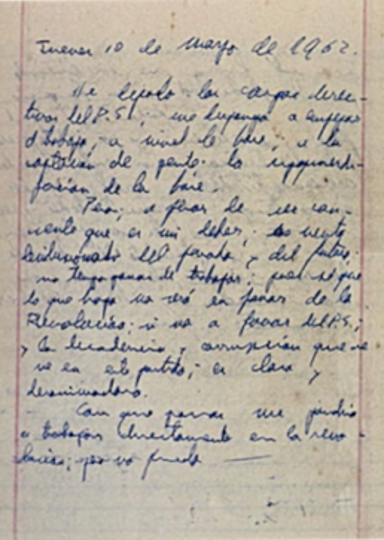 Jueves 10 de Mayo de 1962.
He dejado los cargos direc-
tivos del P.S.; me dispongo a empezar
el trabajo, a nivel de base, a la
captación de gente. la
de la base.
Pero; a pesar de
que es mi deber; me siento
del pasado y del futuro;
no tengo ganas de trabajar; pues sé que
lo que haga no será en favor de la
Revolución; ni va a favor del P.S.;
y la decadencia y corrupción que se
ve en este partido; es clara y
Con que ganas me pondría
a trabajar directamente en la revo-
lución; pero no puedo —